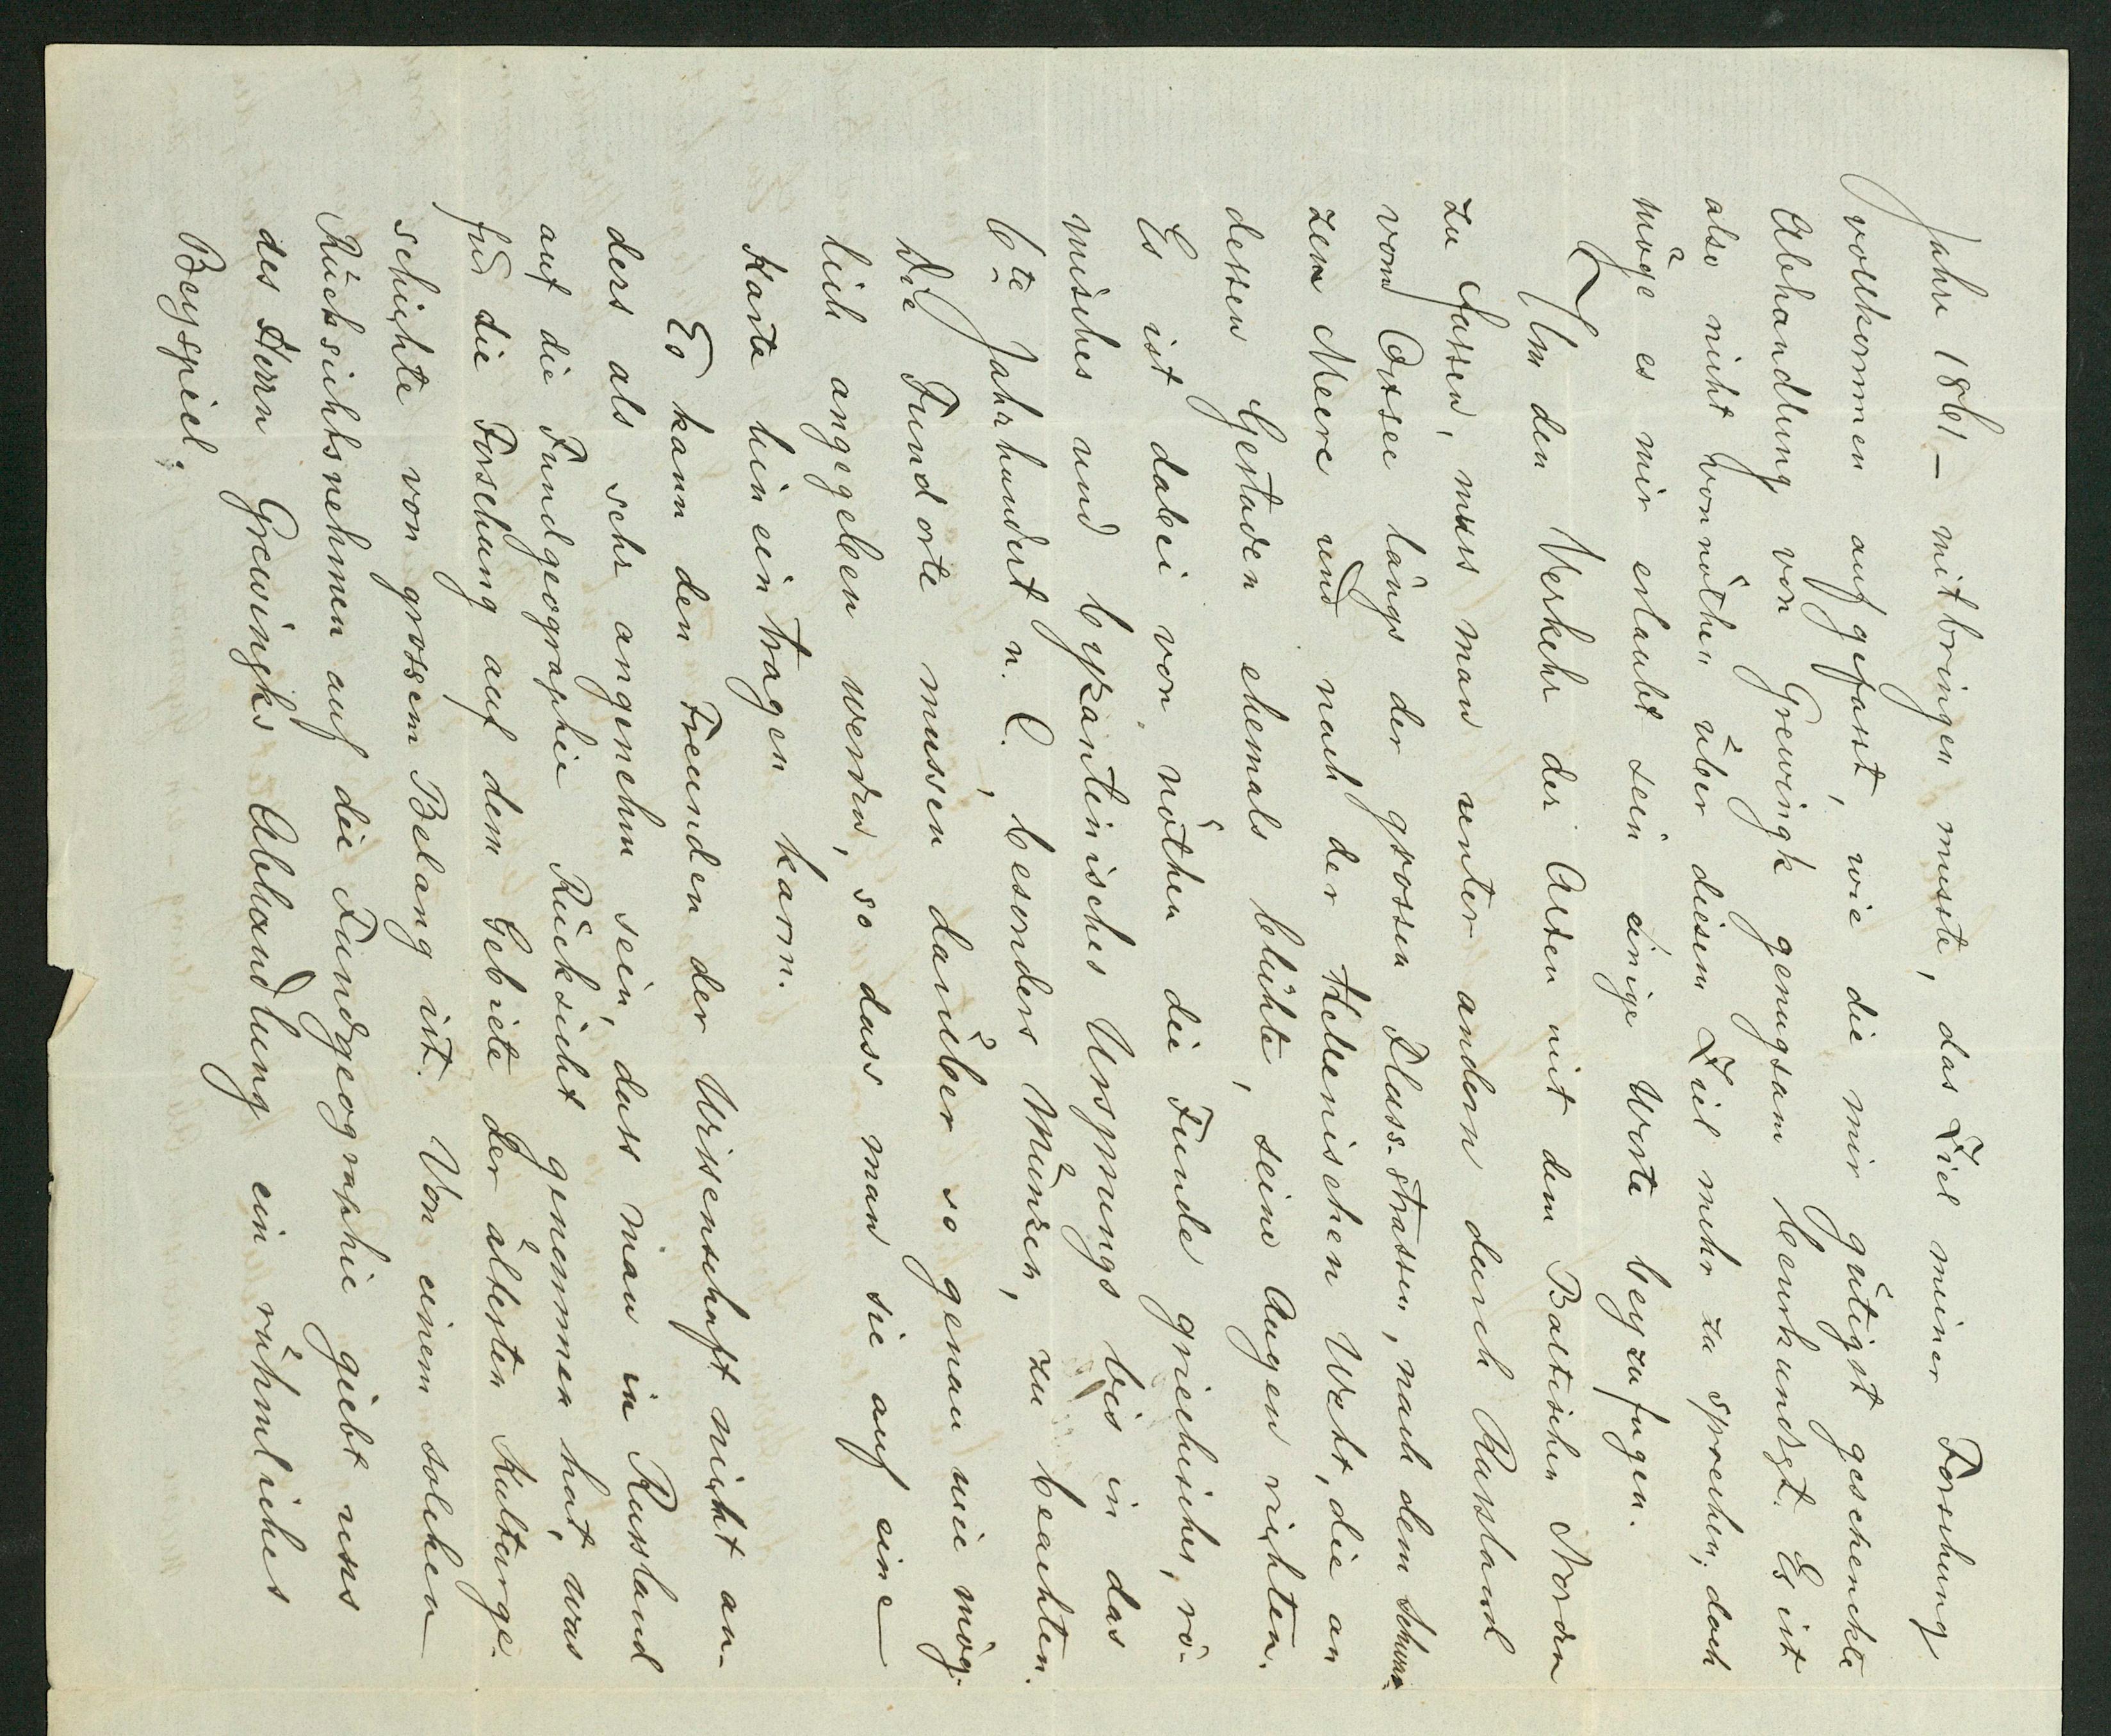 Jahre 1861 – mitbringen musste, das Ziel meiner Forschung
vollkommen aufgefasst, wie die mir gütigst geschenckte
Abhandlung von Grewingk genugsam beurkundet. Es ist
also nicht von nöthen über diesem Ziel mehr zu sprechen; doch
möge es mir erlaubt sein einige Worte beyzufugen.
Um den Verkehr der Alten mit dem Baltischen Norden
zu fassen, muss man unter andern durch Russland
vom Ostsee längs der grossen Fluss-strassen, nach dem Schwar-
zen Meere und nach der Hellenischen Welt, die an
dessen Gestaden ehemals blühte, seine Augen richten.
Es ist dabei von nöthen die Funde griechisches, rö-
misches und byzantinisches Ursprungs bis in das
6te Jahrhundert n. C., besonders Münzen, zu beachten.
Die Fundorte mussen darüber so genau wie mög-
lich angegeben werden, so dass man sie auf eine
Karte hineintragen kann.
Es kann den Freunden der Wissenschaft nicht an-
ders als sehr angenehm sein, dass man in Russland
auf die Fundgeographie Rücksicht genommen hat, was
fur die Forschung auf dem Gebiete der ältesten Kulturge-
schichte von grossem Belang ist. Von einem solchen
Rücksichtsnehmen auf die Fundgeographie giebt uns
des Herrn Grewingks Abhandlung ein rühmliches
Beyspiel.